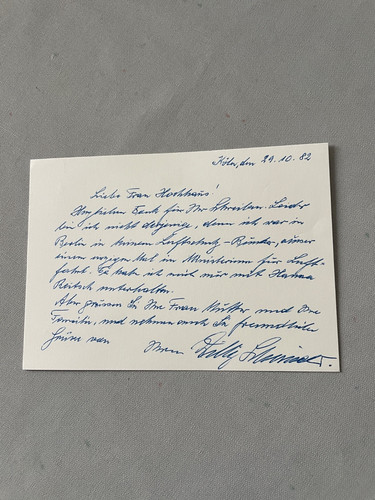 Köln, den 29.10.82
Liebe Frau Hochhaus!
Dank für Ihr Schreiben. Leider
bin ich nicht derjenige, denn ich war in
Berlin in keinem Luftschutz-Bunker, ausser
einem einzigen Mal im Ministerium für Luft-
fahrt. Da hab ich mich nur mit Hanna
Reitsch unterhalten.
Aber grüssen Sie Ihre Frau Mutter und Ihre
Familie, und nehmen auch Sie freundliche
Grüsse von
Ihrem